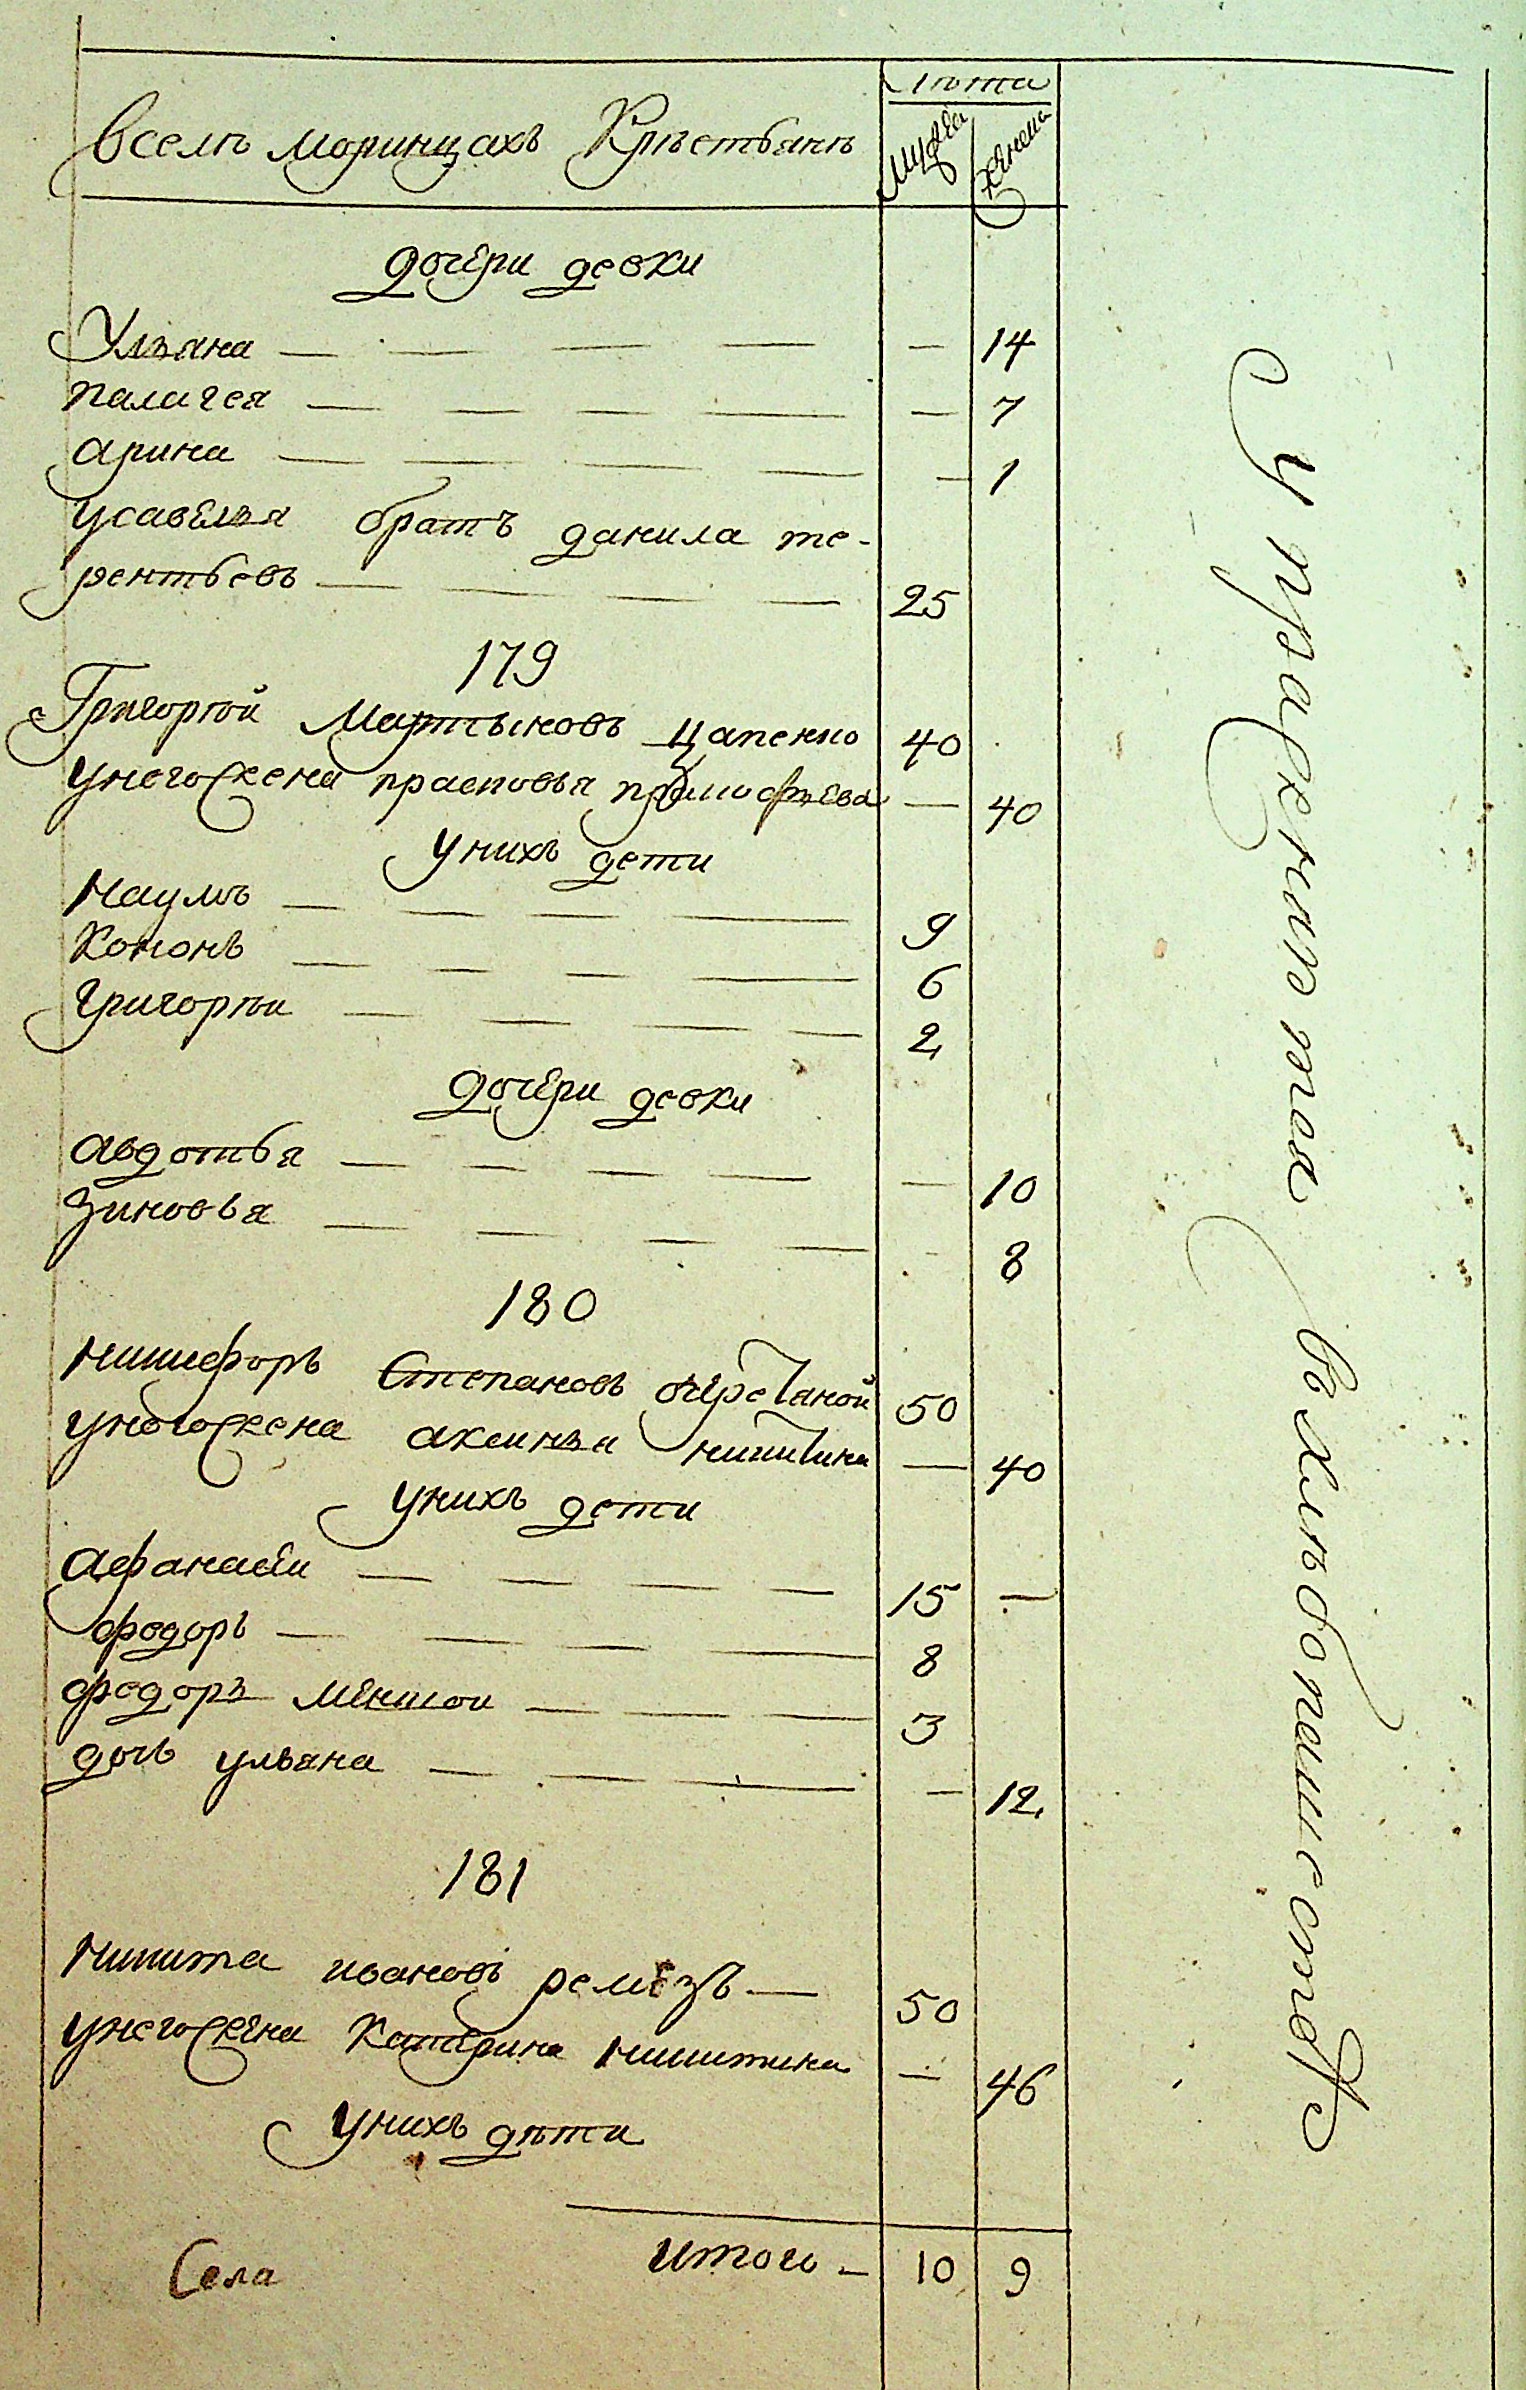 лѣта
вселѣ моринцахъ Крѣстьянъ
мужеска
женска
дочери девки
Ульяна — — — — — 14
палагея — — — — — 7
арина — — — — — 1
усавелья братъ данила те-
рентьевъ — — — — 25
179
Григорѣй Мартыновъ Цапенко 40
унегожена прасковья — 40
унихъ дети
наумъ — — — — 9
Кононъ — — — — 6
григорѣи — — — — 2
дочери девки
авдотья — — — — — 10
зиновья — — — — — 8
180
никифоръ Степановъ очеретяной 50
унегожена аксинья никитина — 40
унихъ дети
афанасеи — — — — 15 —
федоръ — — — — 8
федоръ меншои — — — 3
дочь ульяна — — — — — 12
181
никита ивановъ ремезъ — 50
унегожена Катерина никитина — 46
унихъ дѣти
итого — 10 9
Села
Упражняется вхлѣбопашестве